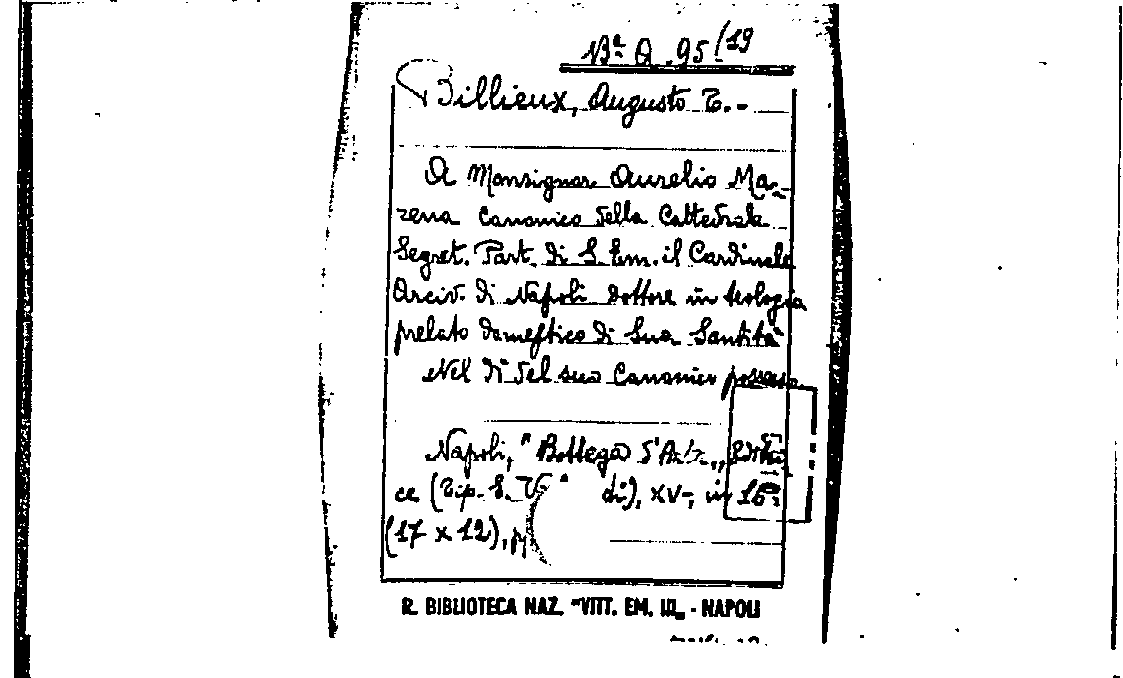 Bª Q. 95 (19
Billieux, Augusto T.-
A Monsignor Aurelio Ma-
rena Canonico della Cattedrale
Segret. Part. di S. Em. il Cardinale
Arciv. di Napoli dottore in teologia
prelato domestico di Sua Santità
Nel dì del suo Canonico possesso
Napoli, "Bottega d'Arte„ Editri
ce (Tip. S. di), XV-, in 16º
(17 x 12), p
R. BIBLIOTECA NAZ. "VITT. EM. III„ - NAPOLI